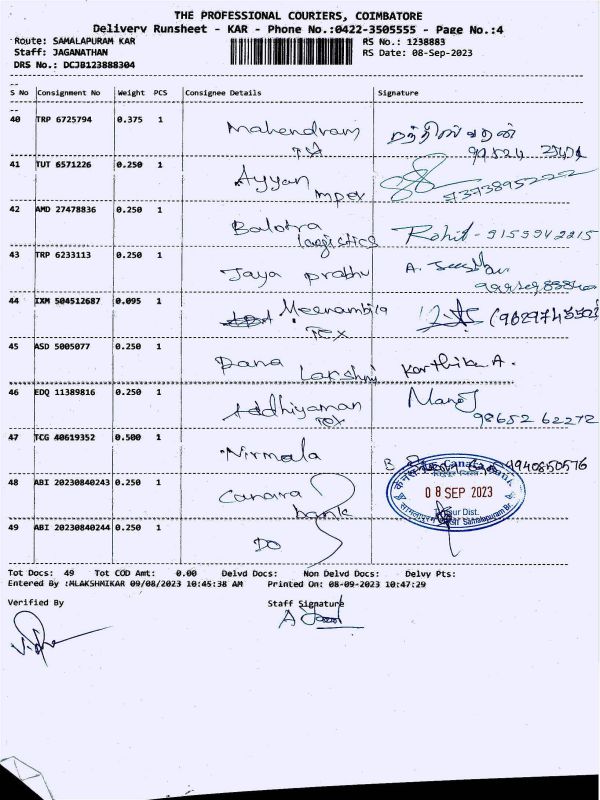 THE PROFESSIONAL COURIERS, COIMBATORE
Delivery Runsheet - KAR - Phone No.:0422-3505555 - Page No.:4
Route: SAMALAPURAM KAR RS No.: 1238883
Staff: JAGANATHAN RS Date: 08-Sep-2023
DRS No.: DCJB123888304
S No Consignment No Weight PCS Consignee Details Signature
40 TRP 6725794 0.375 1 Mahendram
Tex
41 TUT 6571226 0.250 1 Ayyan
impex
42 AMD 27478836 0.250 1 Balotra Rohit - 9159942215
logistics
43 TRP 6233113 0.250 1 Jaya prabhu
44 IXM 504512687 0.095 1 Meenambiga
Tex
45 ASD 5005077 0.250 1 Dana Lakshmi Karthika A.
46 EDQ 11389816 0.250 1 Addhiyaman Manoj
Tex 98652 62272
47 TCG 40619352 0.500 1 Nirmala 9940850576
48 ABI 20230840243 0.250 1 Canara
bank
08 SEP 2023
49 ABI 20230840244 0.250 1 DO
Tot Docs: 49 Tot COD Amt: 0.00 Delvd Docs: Non Delvd Docs: Delvy Pts:
Entered By :MLAKSHMIKAR 09/08/2023 10:45:38 AM Printed On: 08-09-2023 10:47:29
Verified By Staff Signature